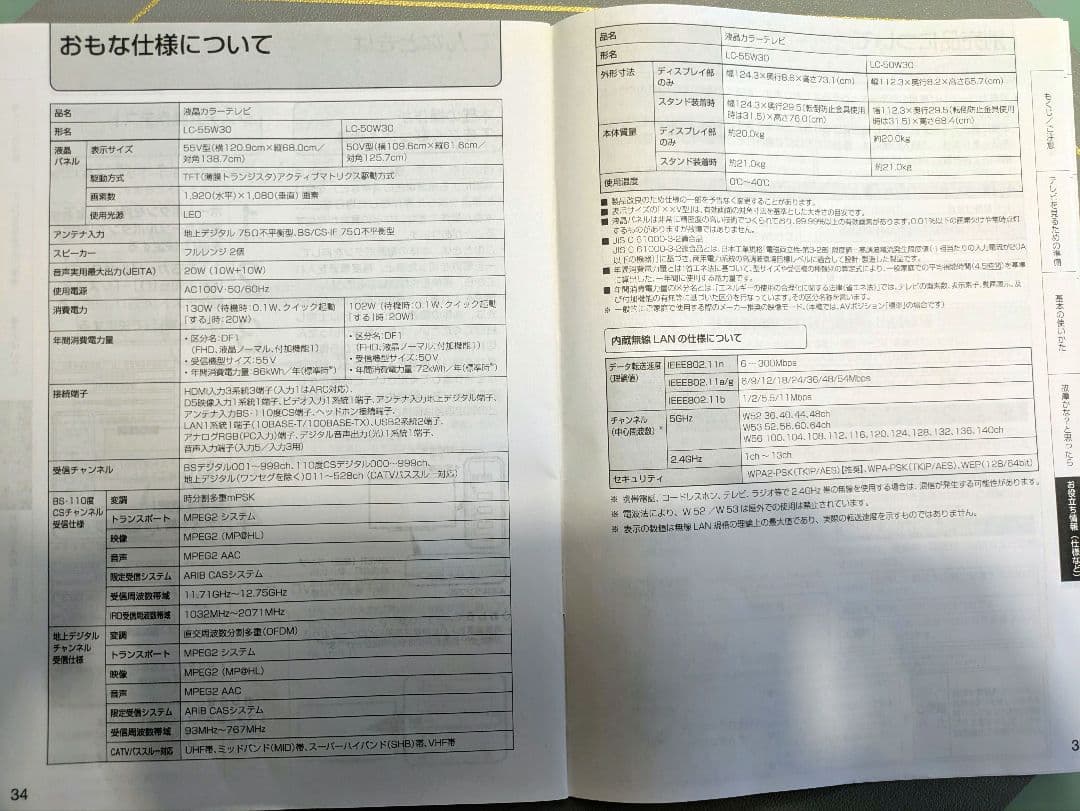 おもな仕様について
品名 液晶カラーテレビ
形名 LC-55W30 LC-50W30
液晶パネル 表示サイズ 55V型(横120.9cm×縦68.0cm/対角138.7cm) 50V型(横109.6cm×縦61.6cm/対角125.7cm)
駆動方式 TFT(薄膜トランジスタ)アクティブマトリクス駆動方式
画素数 1,920(水平)×1,080(垂直) 画素
使用光源 LED
アンテナ入力 地上デジタル 75Ω不平衡型、BS/CS-IF 75Ω不平衡型
スピーカー フルレンジ 2個
音声実用最大出力(JEITA) 20W (10W+10W)
使用電源 AC100V・50/60Hz
消費電力 130W (待機時:0.1W、クイック起動「する」時:20W) 102W (待機時:0.1W、クイック起動「する」時:20W)
年間消費電力量 ・区分名:DF1 ・区分名:DF1
(FHD、液晶ノーマル、付加機能1) (FHD、液晶ノーマル、付加機能1)
・受信機型サイズ:55V ・受信機型サイズ:50V
・年間消費電力量:86kWh/年(標準時*) ・年間消費電力量:72kWh/年(標準時*)
接続端子 HDMI入力3系統3端子(入力1はARC対応)、
D5映像入力1系統1端子、ビデオ入力1系統1端子、アンテナ入力地上デジタル端子、
アンテナ入力BS・110度CS端子、ヘッドホン接続端子、
LAN1系統1端子(10BASE-T/100BASE-TX)、USB2系統2端子、
アナログRGB(PC入力)端子、デジタル音声出力(光)1系統1端子、
音声入力端子(入力5/入力3用)
受信チャンネル BSデジタル001~999ch、110度CSデジタル000~999ch、
地上デジタル(ワンセグを除く)011~528ch (CATVパススルー対応)
BS・110度CSチャンネル受信仕様 変調 時分割多重mPSK
トランスポート MPEG2 システム
映像 MPEG2 (MP@HL)
音声 MPEG2 AAC
限定受信システム ARIB CASシステム
受信周波数帯域 11.71GHz~12.75GHz
IRD受信周波数帯域 1032MHz~2071MHz
地上デジタルチャンネル受信仕様 変調 直交周波数分割多重(OFDM)
トランスポート MPEG2 システム
映像 MPEG2 (MP@HL)
音声 MPEG2 AAC
限定受信システム ARIB CASシステム
受信周波数帯域 93MHz~767MHz
CATVパススルー対応 UHF帯、ミッドバンド(MID)帯、スーパーハイバンド(SHB)帯、VHF帯
34
品名 液晶カラーテレビ
形名 LC-55W30 LC-50W30
外形寸法 ディスプレイ部のみ 幅124.3×奥行8.6×高さ73.1(cm) 幅112.3×奥行8.2×高さ65.7(cm)
スタンド装着時 幅124.3×奥行29.5(転倒防止金具使用時は31.5)×高さ76.0(cm) 幅112.3×奥行29.5(転倒防止金具使用時は31.5)×高さ68.4(cm)
本体質量 ディスプレイ部のみ 約20.0kg 約20.0kg
スタンド装着時 約21.0kg 約21.0kg
使用温度 0℃~40℃
■ 製品改良のため仕様の一部を予告なく変更することがあります。
■ 表示サイズの「××V型」は、有効画面の対角寸法を基準とした大きさの目安です。
■ 液晶パネルは非常に精密度の高い技術でつくられており、99.99%以上の有効画素があります。0.01%以下の画素欠けや常時点灯するものがありますが故障ではありません。
■ JIS C 61000-3-2適合品
JIS C 61000-3-2適合品とは、日本工業規格「電磁両立性-第3-2部:限度値-高調波電流発生限度値(1相当たりの入力電流が20A以下の機器)」に基づき、商用電力系統の高調波環境目標レベルに適合して設計・製造した製品です。
■ 年間消費電力量とは:省エネ法に基づいて、型サイズや受信機の種類別の算定式により、一般家庭での平均視聴時間(4.5時間)を基準に算出した、一年間に使用する電力量です。
■ 年間消費電力量の区分名とは:「エネルギーの使用の合理化に関する法律(省エネ法)」では、テレビの画素数、表示素子、動画表示、及び付加機能の有無等に基づいた区分を行なっています。その区分名称を言います。
※ 一般的にご家庭で使用する際のメーカー推奨の映像モード。(本機では、AVポジション「標準」の場合です)
内蔵無線LANの仕様について
データ転送速度(理論値) IEEE802.11n 6~300Mbps
IEEE802.11a/g 6/9/12/18/24/36/48/54Mbps
IEEE802.11b 1/2/5.5/11Mbps
チャンネル(中心周波数)* 5GHz W52 36、40、44、48ch
W53 52、56、60、64ch
W56 100、104、108、112、116、120、124、128、132、136、140ch
2.4GHz 1ch~13ch
セキュリティ WPA2-PSK(TKIP/AES)【推奨】、WPA-PSK(TKIP/AES)、WEP(128/64bit)
※ 携帯電話、コードレスホン、テレビ、ラジオ等で2.4GHz帯の無線を使用する場合は、混信が発生する可能性があります。
※ 電波法により、W52/W53は屋外での使用は禁止されています。
※ 表示の数値は無線LAN規格の理論上の最大値であり、実際の転送速度を示すものではありません。
もくじ/ご注意
テレビを見るための準備
基本の使いかた
故障かな?と思ったら
お役立ち情報(仕様など)
3